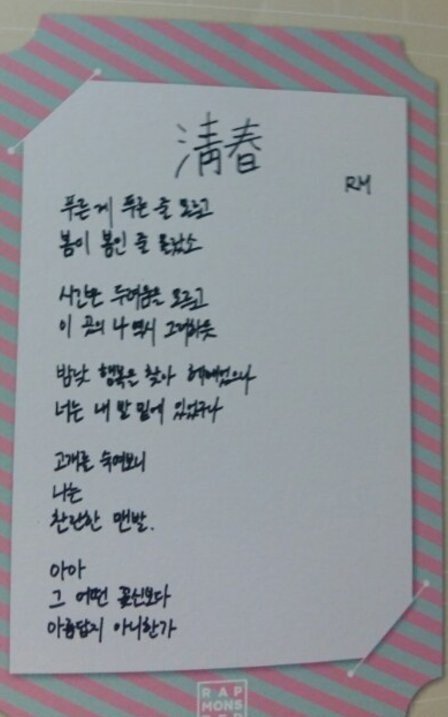 清春
RM
푸른 게 푸른 줄 모르고
봄이 봄인 줄 몰랐소
시간만 두려움을 모르고
이 곳의 나 역시 그러하듯
밤낮 행복을 찾아 헤매었으나
너는 내 발 밑에 있었구나
고개를 숙여보니
나는
찬란한 맨발.
아아
그 어떤 꽃신보다
아름답지 아니한가
RAP
MONS